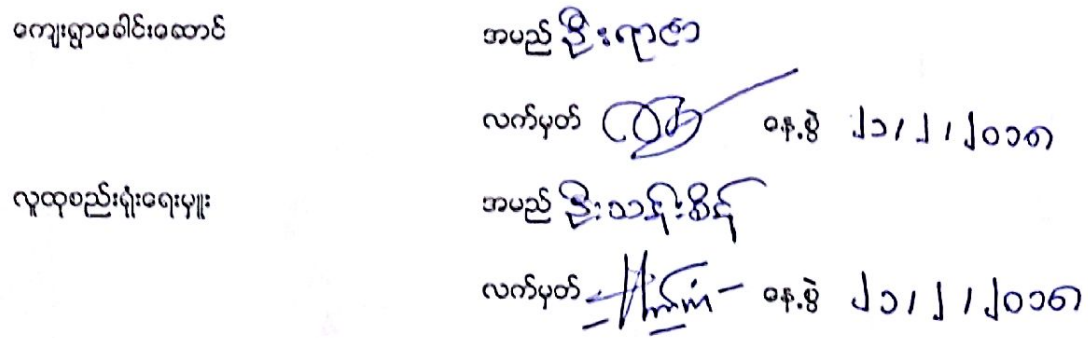 ကျေးရွာခေါင်းဆောင် အမည် ဦးရာဇာ
လက်မှတ် နေ့စွဲ ၂၁/၂/၂၀၁၈
လူထုစည်းရုံးရေးမှူး အမည် ဦးသန်းစိန်
လက်မှတ် နေ့စွဲ ၂၁/၂/၂၀၁၈